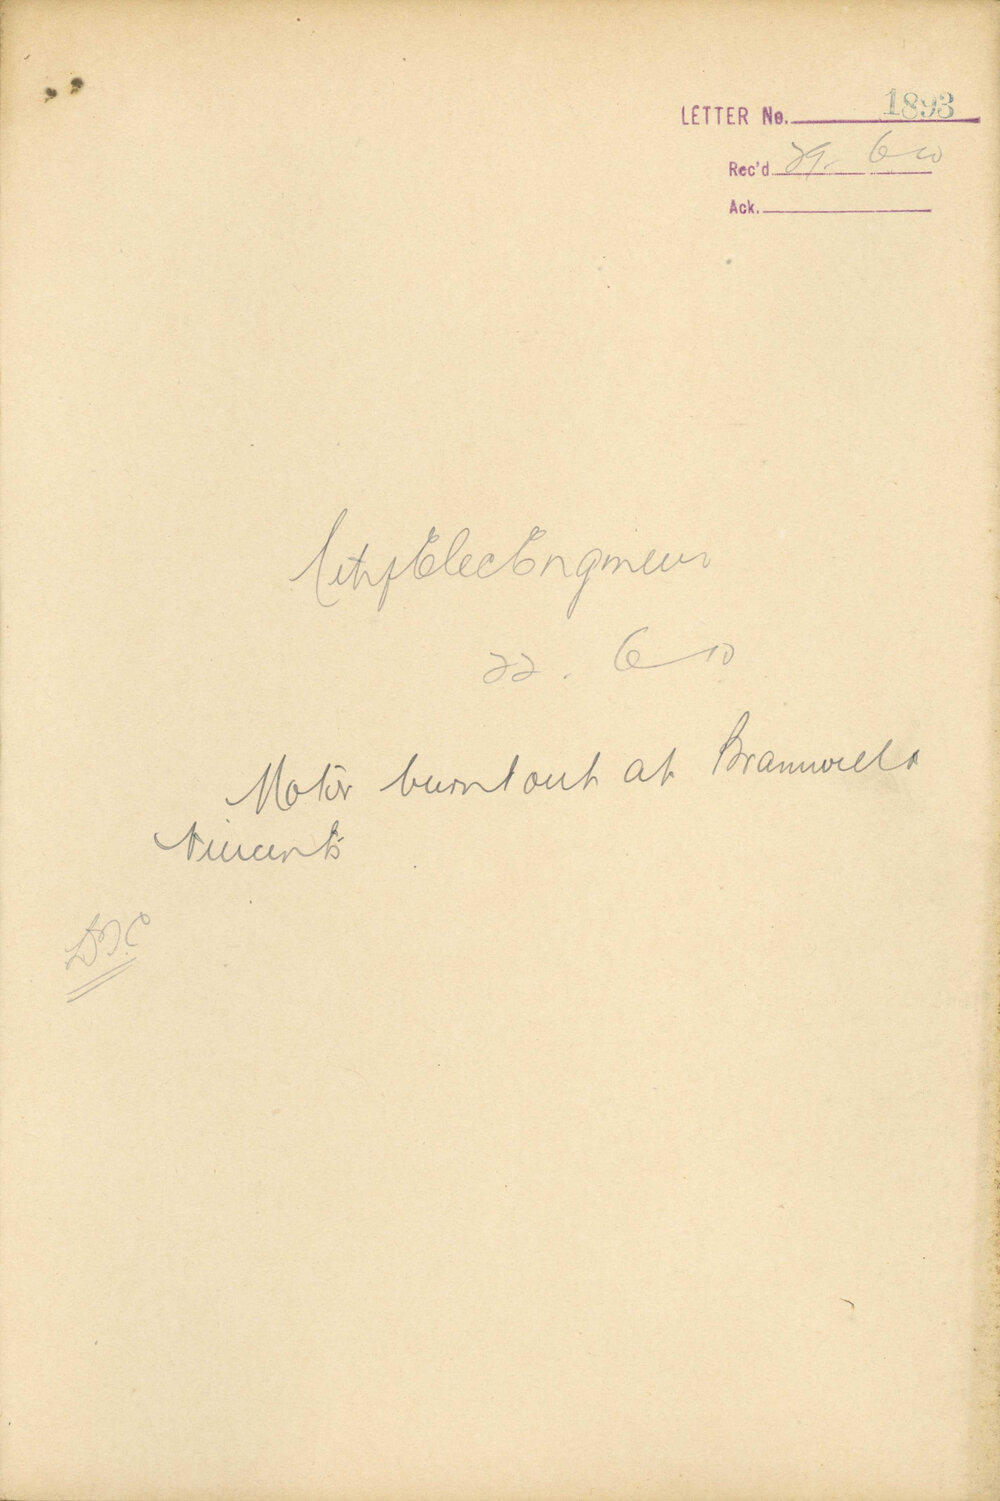 LETTER No. 1893
Rec'd 29. 6 10
Ack.
City Elec Engineer
22. 6 10
Motor burnt out at Bramwells
Vincents